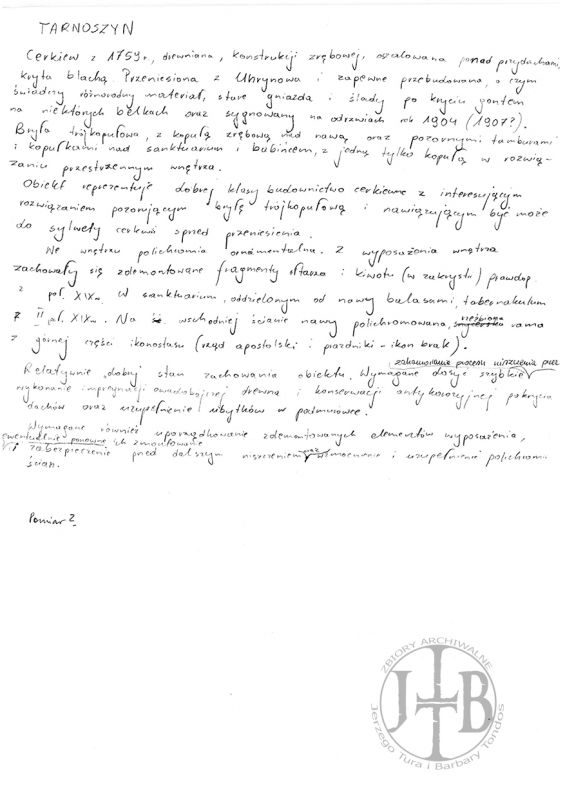 TARNOSZYN
Cerkiew z 1759 r, drewniana, konstrukcji zrębowej, oszalowana ponad przydachami,
kryta blachą. Przeniesiona z Uhrynowa i zapewne przebudowana, o czym
świadczy różnorodny materiał, stare gniazda i ślady po kryciu gontem
na niektórych belkach oraz sygnowany na odrzwiach rok 1904 (1907?).
Bryła trójkopułowa, z kopułą zrębową nad nawą oraz pozornymi tamburami
i kopułkami nad sanktuarium i babińcem, z jedną tylko kopułą w rozwią-
zaniu przestrzennym wnętrza.
Obiekt reprezentuje dobrej klasy budownictwo cerkiewne z interesującym
rozwiązaniem pozorującym bryłę trójkopułową i nawiązującym być może
do sylwety cerkwi sprzed przeniesienia.
We wnętrzu polichromia ornamentalna. Z wyposażenia wnętrza
zachowały się zdemontowane fragmenty ołtarza i kiwotu (w zakrystii) prawdop.
z poł. XIX w. W sanktuarium, oddzielonym od nawy balasami, tabernakulum
z II poł. XIX w. Na wschodniej ścianie nawy polichromowana, rzeźbiona rama
z górnej części ikonostasu (rząd apostolski i prazdniki - ikon brak).
Relatywnie dobry stan zachowania obiektu. Wymagane dosyć szybkie zahamowanie procesu niszczenia przez
wykonanie impregnacji owadobójczej drewna i konserwacji antykorozyjnej pokrycia
dachów oraz uzupełnienie ubytków w podmurówce.
Wymagane również uporządkowanie zdemontowanych elementów wyposażenia,
ewentualnie ponowne ich zmontowanie
i zabezpieczenie przed dalszym niszczeniem oraz wzmocnienie i uzupełnienie polichromii
ścian.
Pomiar?
ZBIORY ARCHIWALNE
JTBT
Jerzego Tura i Barbary Tondos